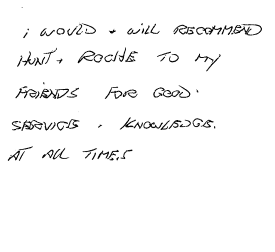 i WOULD + WiLL RECOMMEND
HUNT + ROCHE TO MY
FRIENDS FOR GOOD
SERVICE + KNOWLEDGE
AT ALL TIMES